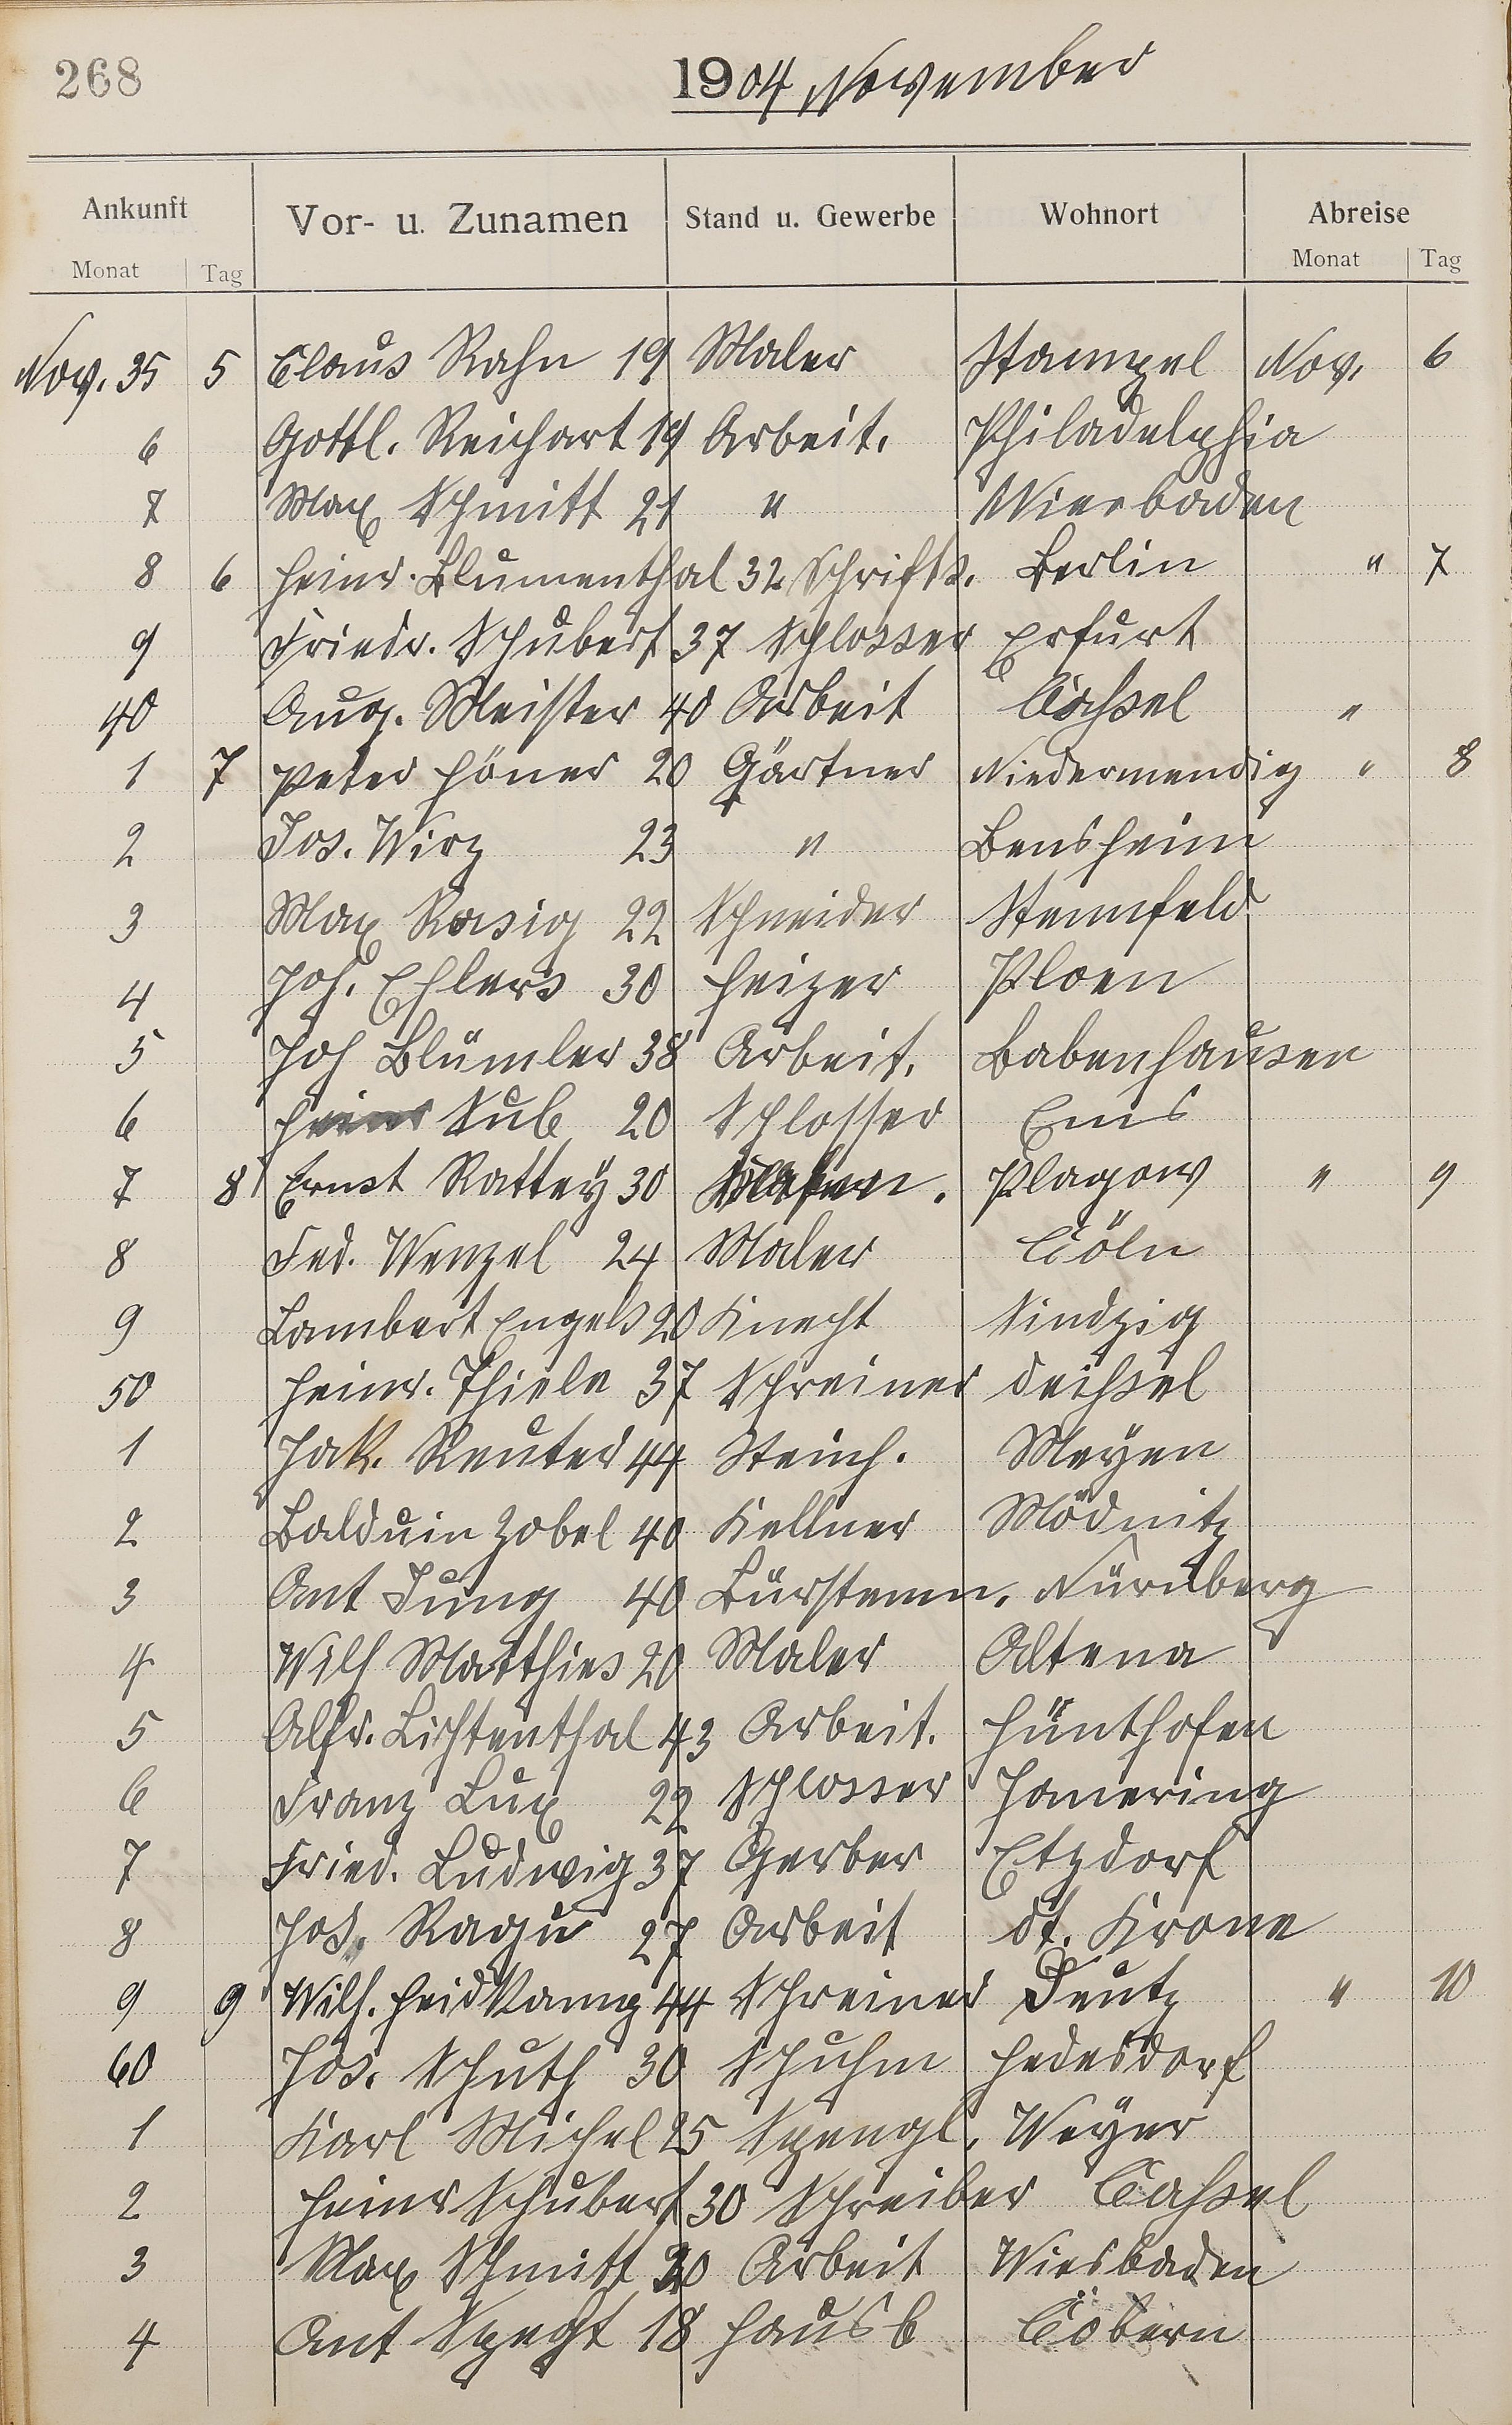 268
1904 November
Ankunft Vor- u. Zunamen Stand u. Gewerbe Wohnort Abreise
Monat Tag Monat Tag
Nov. 35 5 Claus Rahn 19 Maler Stampel Nov. 6
6 Gottl. Reichart 19 Arbeit. Philadelphia
7 Max Schmitt 21 " Wiesbaden
8 6 Heinr. Blumenthal 32 Schrifts. Berlin " 7
9 Friedr. Schubert 37 Schlosser Erfurt
40 Aug. Meister 40 Arbeit Cassel "
1 7 Peter Höner 20 Gärtner Niedermendig " 8
2 Jos. Wirz 23 " Bensheim
3 Max Rasig 22 Schneider Stennfeld
4 Joh. Ehlers 30 Heizer Ploen
5 Joh Blümler 38 Arbeit. Babenhausen
6 Heinr Sub 20 Schlosser Ems
7 8 Ernst Rattey 30 Plagow " 9
8 Fed. Wenzel 24 Maler Cöln
9 Lambert Engels 20 Knecht Sindzig
50 Heinr. Thiele 37 Schreiner Deissel
1 Jak. Reuter 44 Steinh. Meyen
2 Balduin Zobel 40 Kellner Mödnitz
3 Ant Jung 40 Bürstenm. Nürnberg
4 Wilh Matthies 20 Maler Altena
5 Alfr. Lichtenthal 43 Arbeit. Hünthofen
6 Franz Lux 22 Schlosser Homering
7 Fried. Ludwig 37 Gerber Etzdorf
8 Jos. Ragu 27 Arbeit Dt. Krone
9 9 Wilh. Heidkamp 44 Schreiner Deutz " 10
60 Jos. Schuth 30 Schuhm Hedesdorf
1 Karl Michel 25 Spengl. Weyer
2 Heinr Schubert 30 Schreiber Cassel
3 Max Schmitt 20 Arbeit Wiesbaden
4 Ant Specht 18 Hausb Cobern